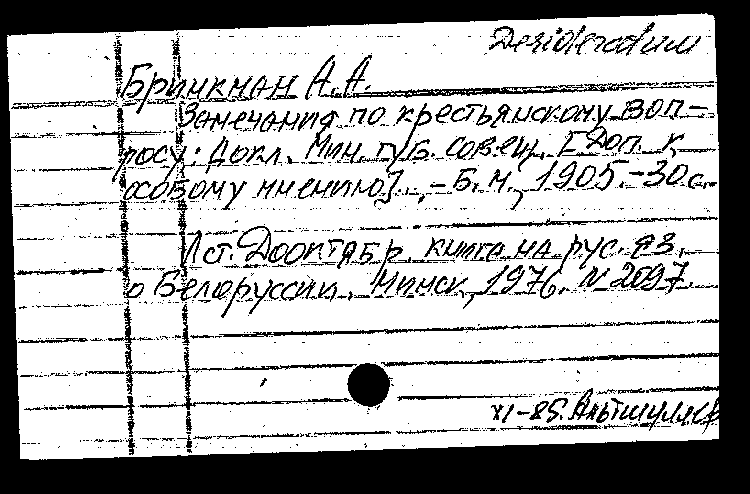 Desideratum
Бринкман А.А.
Замечания по крестьянскому воп-
росу: Докл. Мин. губ. совещ. [Доп. к
особому мнению]. – Б.м., 1905. – 30 с.
Ист. Дооктябр. книга на рус. яз.
о Белоруссии. Минск, 1976. № 2097.
XI-85. Альтшуллер